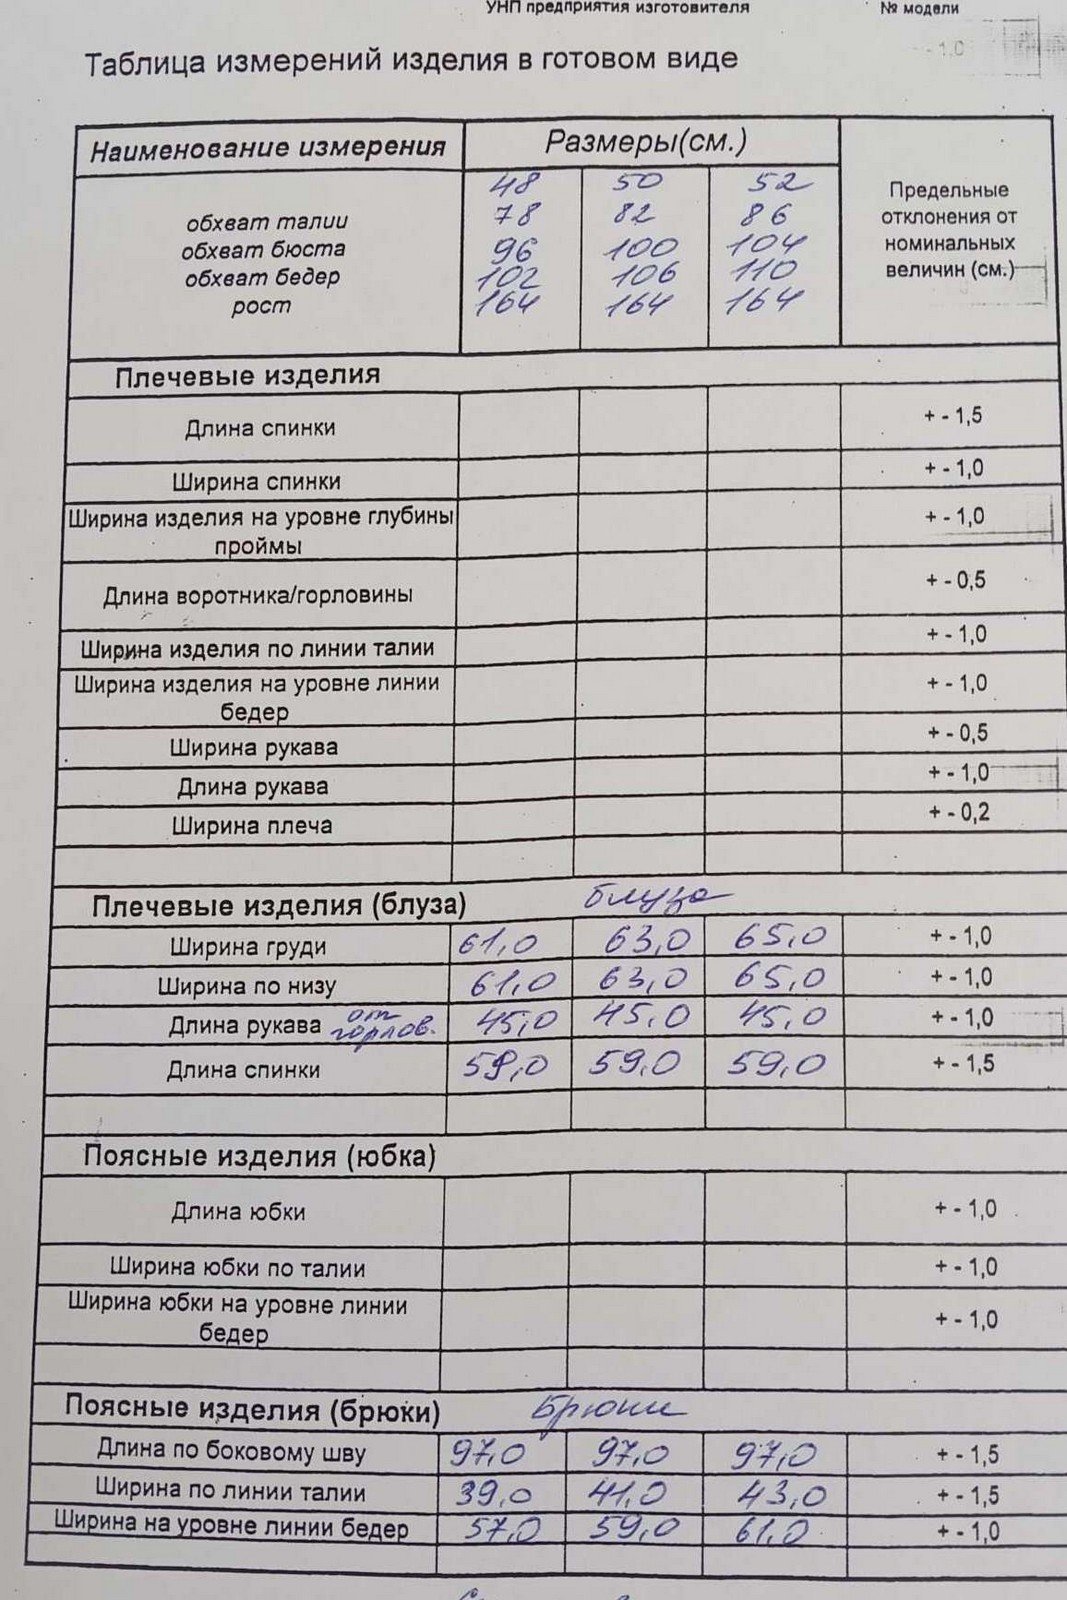 УНП предприятия изготовителя № модели
- 1,0
Таблица измерений изделия в готовом виде
Наименование измерения Размеры(см.) Предельные отклонения от номинальных величин (см.)
48 50 52
обхват талии 78 82 86
обхват бюста 96 100 104
обхват бедер 102 106 110
рост 164 164 164
Плечевые изделия
Длина спинки + - 1,5
Ширина спинки + - 1,0
Ширина изделия на уровне глубины проймы + - 1,0
Длина воротника/горловины + - 0,5
Ширина изделия по линии талии + - 1,0
Ширина изделия на уровне линии бедер + - 1,0
Ширина рукава + - 0,5
Длина рукава + - 1,0
Ширина плеча + - 0,2
Плечевые изделия (блуза) блуза
Ширина груди 61,0 63,0 65,0 + - 1,0
Ширина по низу 61,0 63,0 65,0 + - 1,0
Длина рукава от горлов. 45,0 45,0 45,0 + - 1,0
Длина спинки 59,0 59,0 59,0 + - 1,5
Поясные изделия (юбка)
Длина юбки + - 1,0
Ширина юбки по талии + - 1,0
Ширина юбки на уровне линии бедер + - 1,0
Поясные изделия (брюки) Брюки
Длина по боковому шву 97,0 97,0 97,0 + - 1,5
Ширина по линии талии 39,0 41,0 43,0 + - 1,5
Ширина на уровне линии бедер 57,0 59,0 61,0 + - 1,0